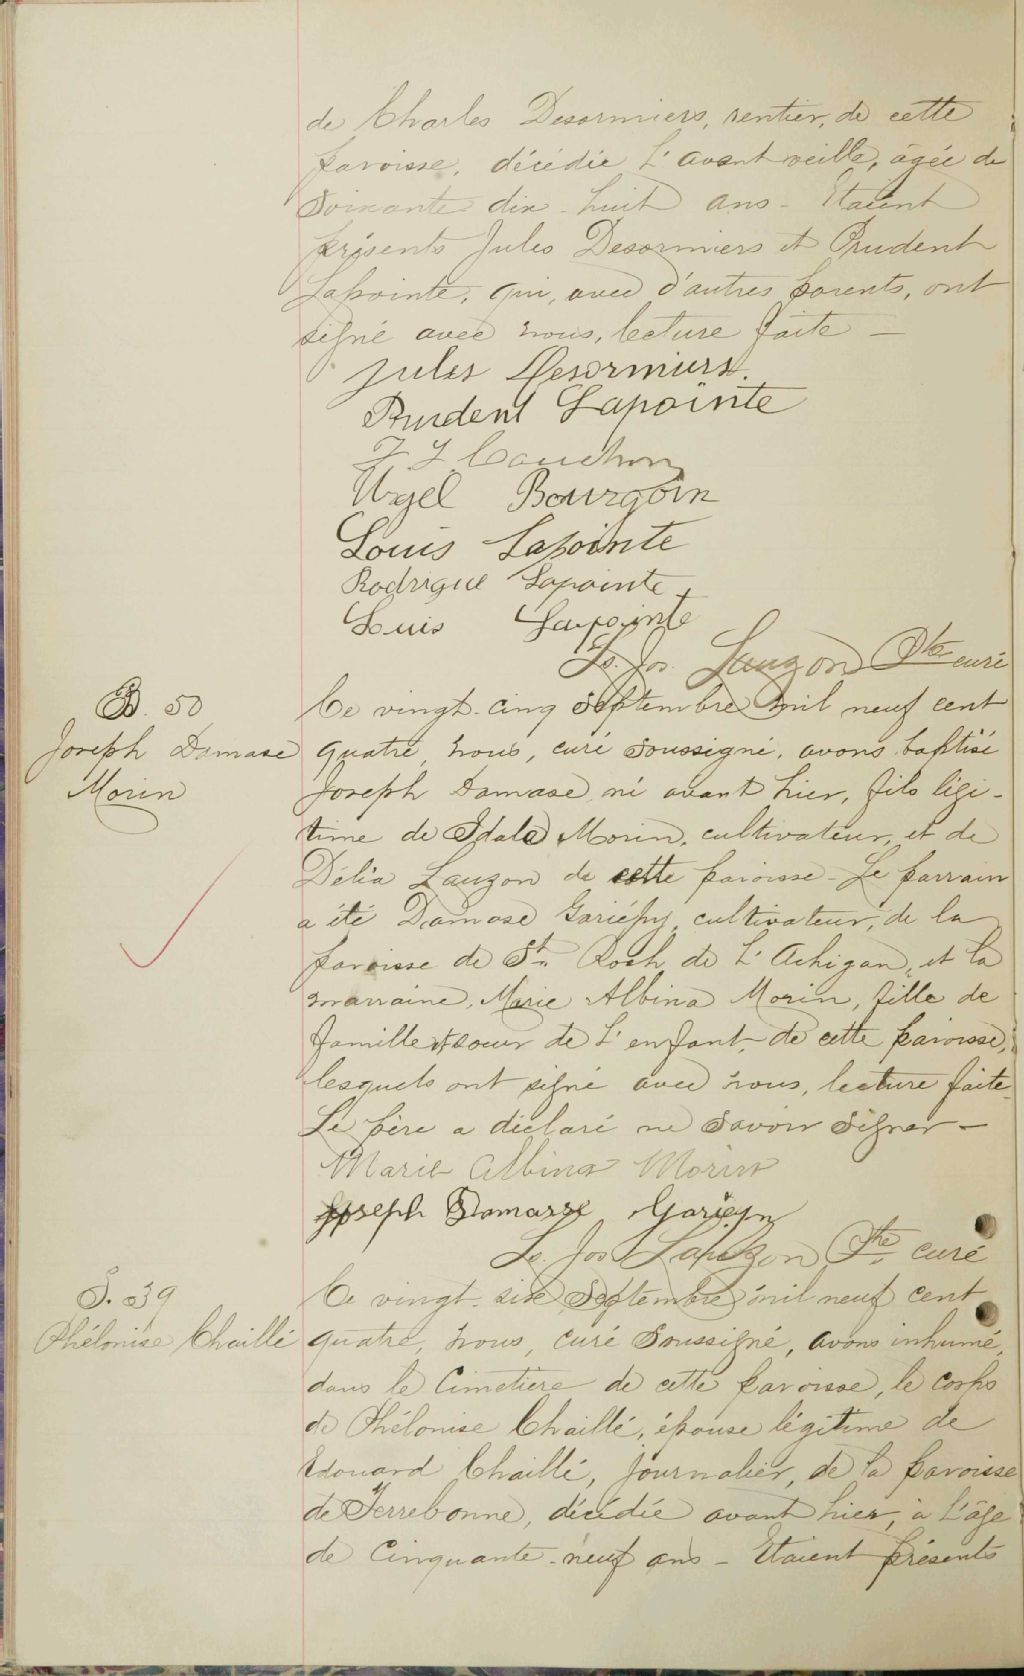 de Charles Desormiers, rentier, de cette
paroisse, décédée l'avant veille, âgée de
Soixante dix-huit ans - Etaient
présents Jules Desormiers et Prudent
Lapointe, qui, avec d'autres parents, ont
signé avec nous, lecture faite -
Jules Desormiers.
Prudent Lapointe
Cauchon
Urgel Bourgoin
Louis Lapointe
Rodrigue Lapointe
Louis Lapointe
Ls. Jos. Lauzon Ptre curé
B. 50
Joseph Damase
Morin
Ce vingt-cinq Septembre mil neuf cent
quatre, nous, curé soussigné, avons baptisé
Joseph Damase né avant hier, fils légi-
time de Idala Morin, cultivateur, et de
Délia Lauzon de cette paroisse - Le parrain
a été Damase Gariépy, cultivateur, de la
paroisse de St. Roch de L'Achigan, et la
marraine, Marie Albina Morin, fille de
famille et soeur de l'enfant, de cette paroisse,
lesquels ont signé avec nous, lecture faite.
Le père a déclaré ne savoir signer -
Marie Albina Morin
Joseph Damasse Gariepy
Ls. Jos. Lauzon Ptre curé
S. 39
Phélonise Chaillé
Ce vingt-six Septembre mil neuf cent
quatre, nous, curé Soussigné, avons inhumé,
dans le Cimetière de cette paroisse, le corps
de Phélonise Chaillé, épouse légitime de
Edouard Chaillé, journalier, de la paroisse
de Terrebonne, décédée avant hier, à l'âge
de Cinquante-neuf ans - Etaient présents